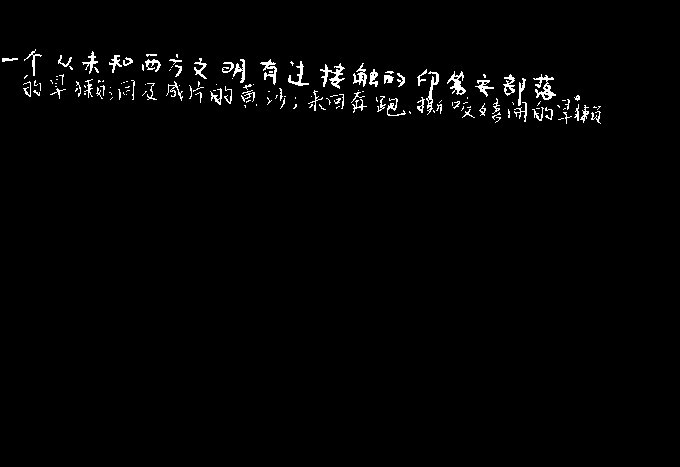 一个从未和西方文明有过接触的印第安部落。
的旱獭洞及成片的黄沙;来回奔跑、撕咬嬉闹的旱獭